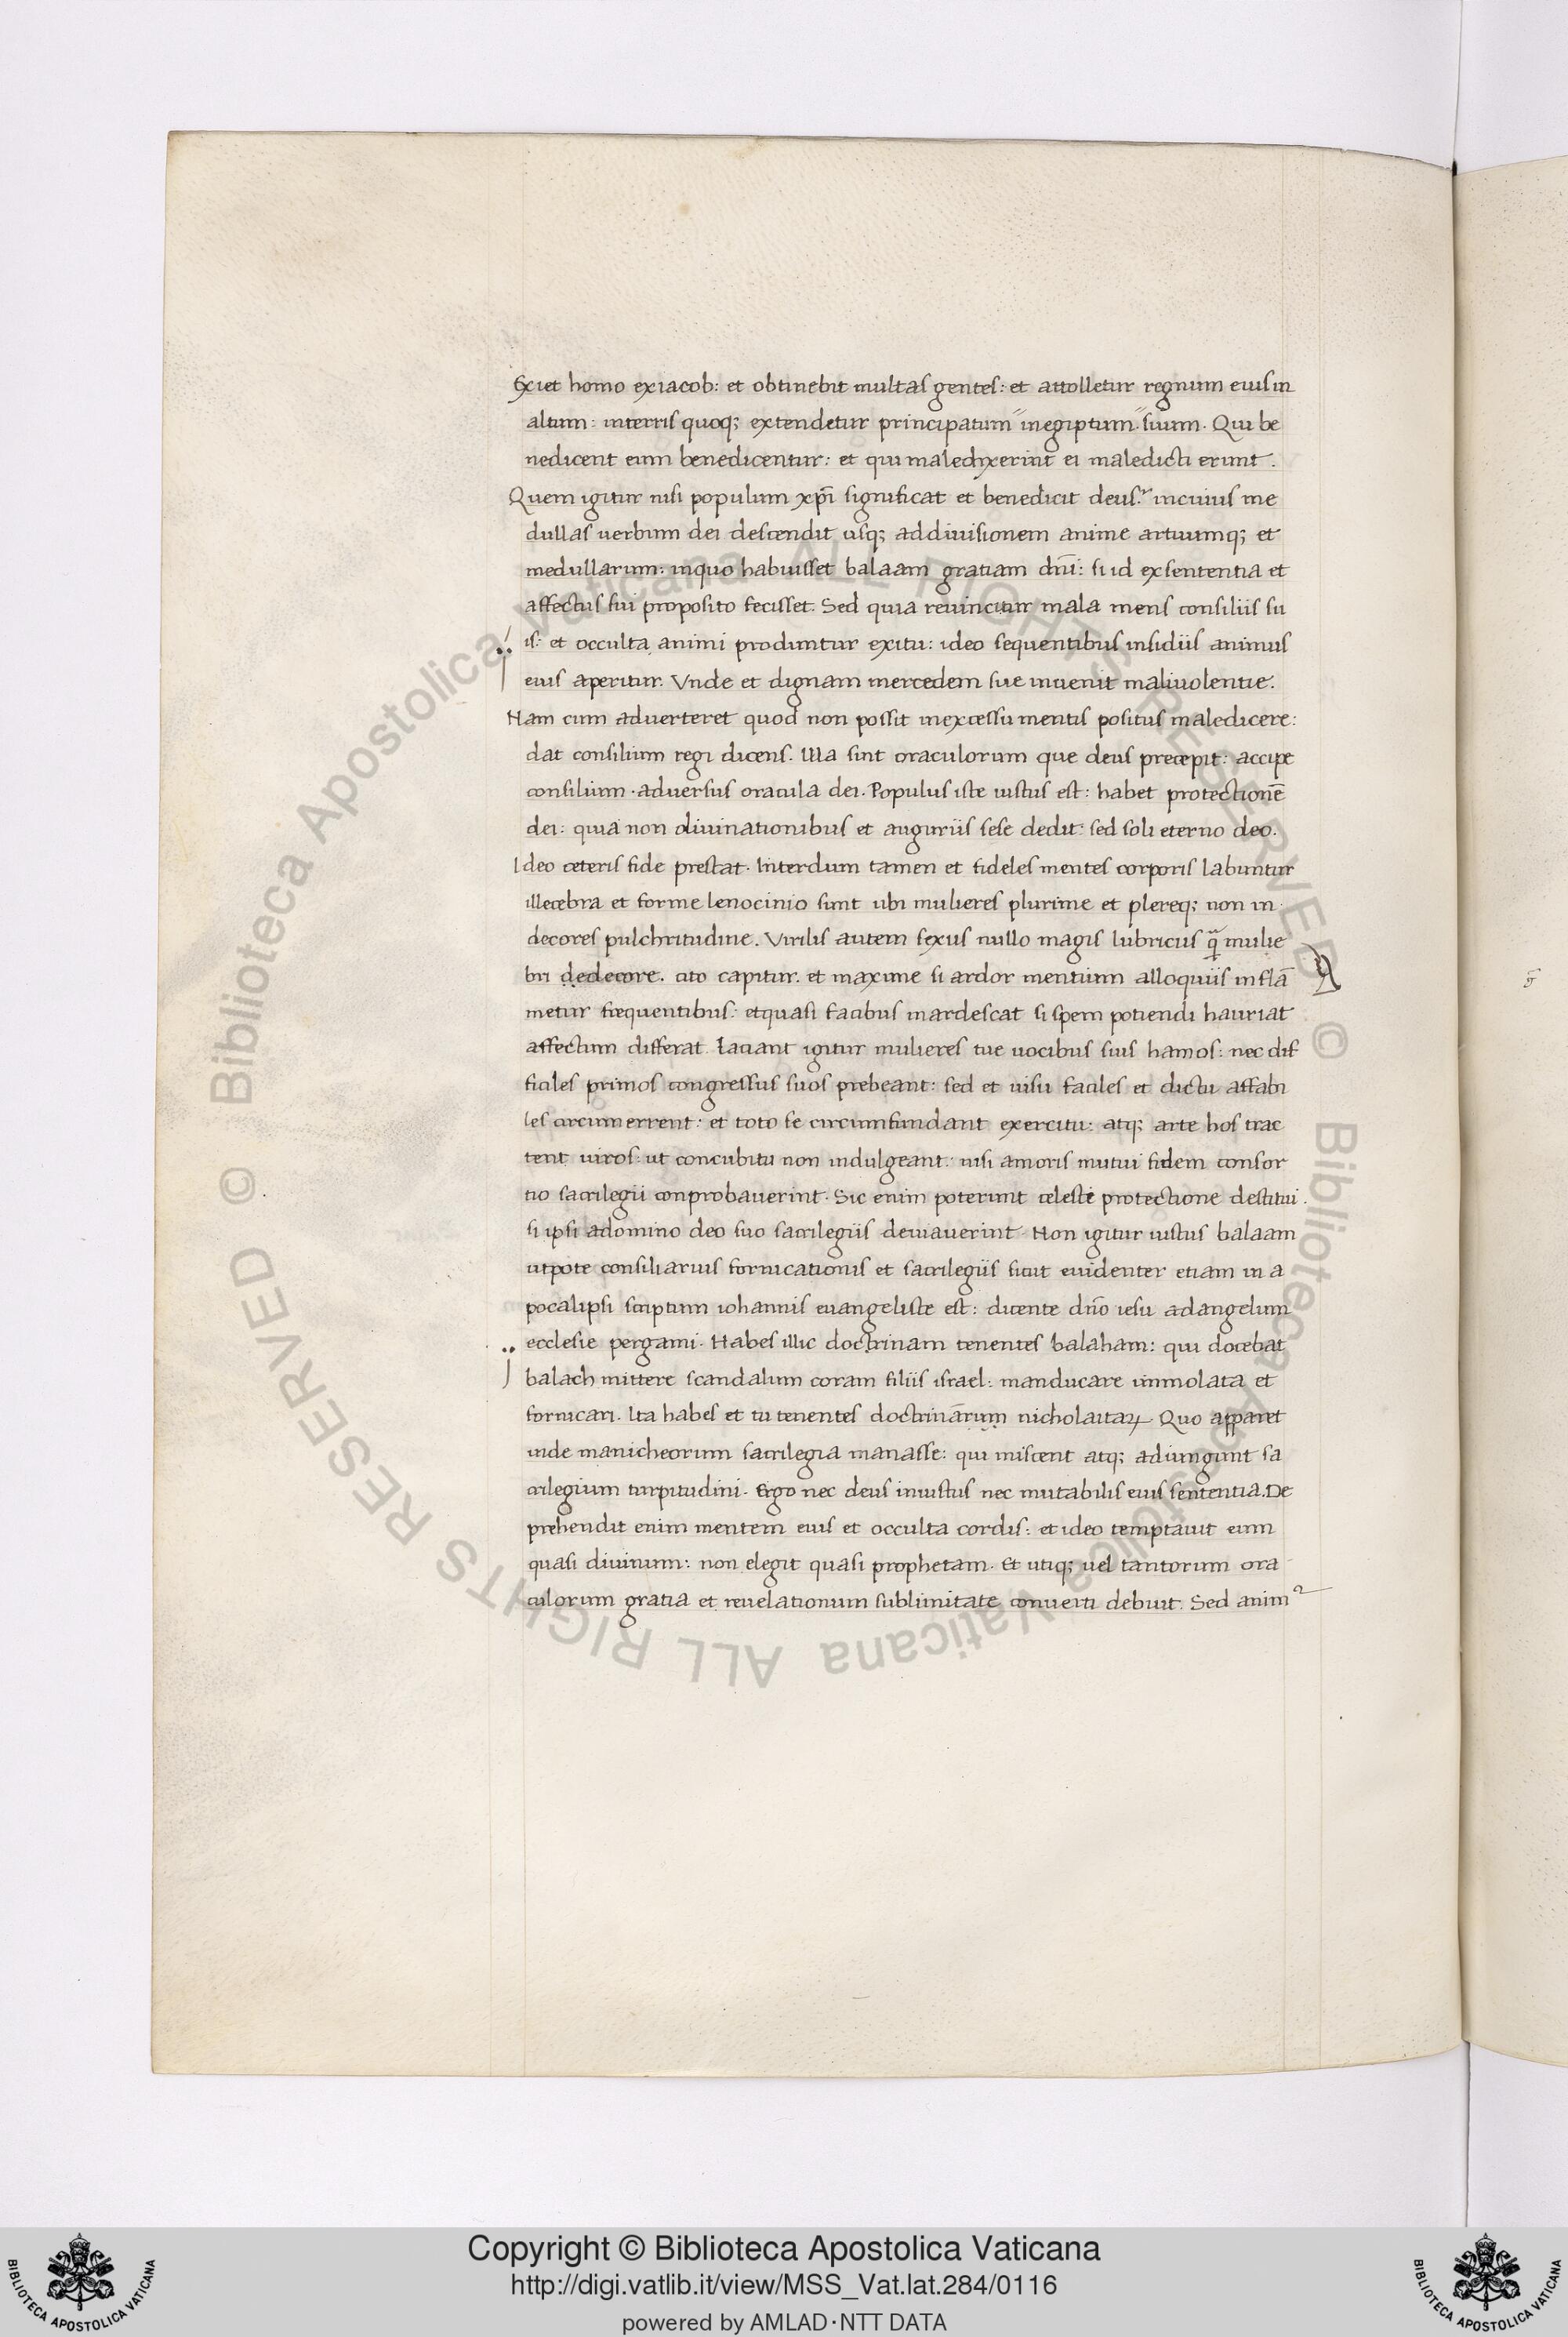 Exiet homo ex iacob: et obtinebit multas gentes: et attolletur regnum eius in
altum: in terris quoq; extendetur principatum in egiptum suum. Qui be
nedicent eum benedicentur: et qui maledixerint ei maledicti erunt.
Quem igitur nisi populum xp̄i significat et benedicit deus? in cuius me
dullas uerbum dei descendit usq; ad diuisionem anime artuumq; et
medullarum: in quo habuisset balaam gratiam dn̄i: si id ex sententia et
affectus sui proposito fecisset. Sed quia reuincitur mala mens consiliis su
is: et occulta animi produntur exitu: ideo sequentibus insidiis animus
eius aperitur. Vnde et dignam mercedem sue inuenit maliuolentie.
Nam cum aduerteret quod non possit in excessu mentis positus maledicere:
dat consilium regi dicens. Illa sint oraculorum que deus precepit: accipe
consilium. aduersus oracula dei. Populus iste iustus est: habet protectionē
dei: quia non diuinationibus et auguriis sese dedit: sed soli eterno deo.
Ideo ceteris fide prestat. Interdum tamen et fideles mentes corporis labuntur
illecebra et forme lenocinio sunt ubi mulieres plurime et plereq; non in
decores pulchritudine. Virilis autem sexus nullo magis lubricus q̄ mulie
bri dedecore. cito capitur. et maxime si ardor mentium alloquiis inflā
metur frequentibus: et quasi facibus inardescat si spem potiendi hauriat
affectum differat. Iaciant igitur mulieres tue uocibus suis hamos: nec dif
ficiles primos congressus suos prebeant: sed et uisu faciles et dictu affabi
les circumerrent: et toto se circumfundant exercitu: atq; arte hos trac
tent uiros: ut concubitu non indulgeant: nisi amoris mutui fidem consor
tio sacrilegii conprobauerint. Sic enim poterunt celesti protectione destitui.
si ipsi a domino deo suo sacrilegiis deuiauerint. Non igitur iustus balaam
utpote consiliarius fornicationis et sacrilegiis sicut euidenter etiam in a
pocalipsi scriptum iohannis euangeliste est: dicente dn̄o iesu ad angelum
ecclesie pergami. Habes illic doctrinam tenentes balaham: qui docebat
balach mittere scandalum coram filiis israel: manducare immolata et
fornicari. Ita habes et tu tenentes doctrinārum nicholaitaꝝ Quo apparet
inde manicheorum sacrilegia manasse: qui miscent atq; adiungunt sa
crilegium turpitudini. Ergo nec deus iniustus nec mutabilis eius sententia. De
prehendit enim mentem eius et occulta cordis: et ideo temptauit eum
quasi diuinum: non elegit quasi prophetam. Et utiq; uel tantorum ora
culorum gratia et reuelationum sublimitate conuerti debuit. Sed anim
Copyright © Biblioteca Apostolica Vaticana
http://digi.vatlib.it/view/MSS_Vat.lat.284/0116
powered by AMLAD·NTT DATA